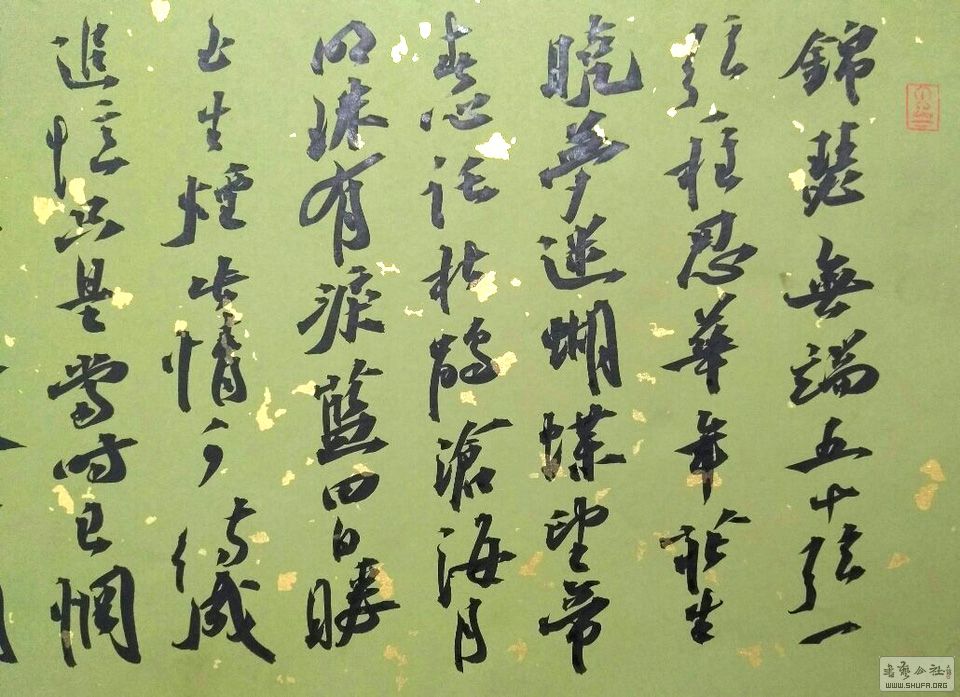 錦瑟無端五十弦一
弦一柱思華年莊生
曉夢迷蝴蝶望帝
春心託杜鵑滄海月
明珠有淚藍田日暖
玉生煙此情可待成
追憶只是當時已惘
書藝公社
WWW.SHUFA.ORG